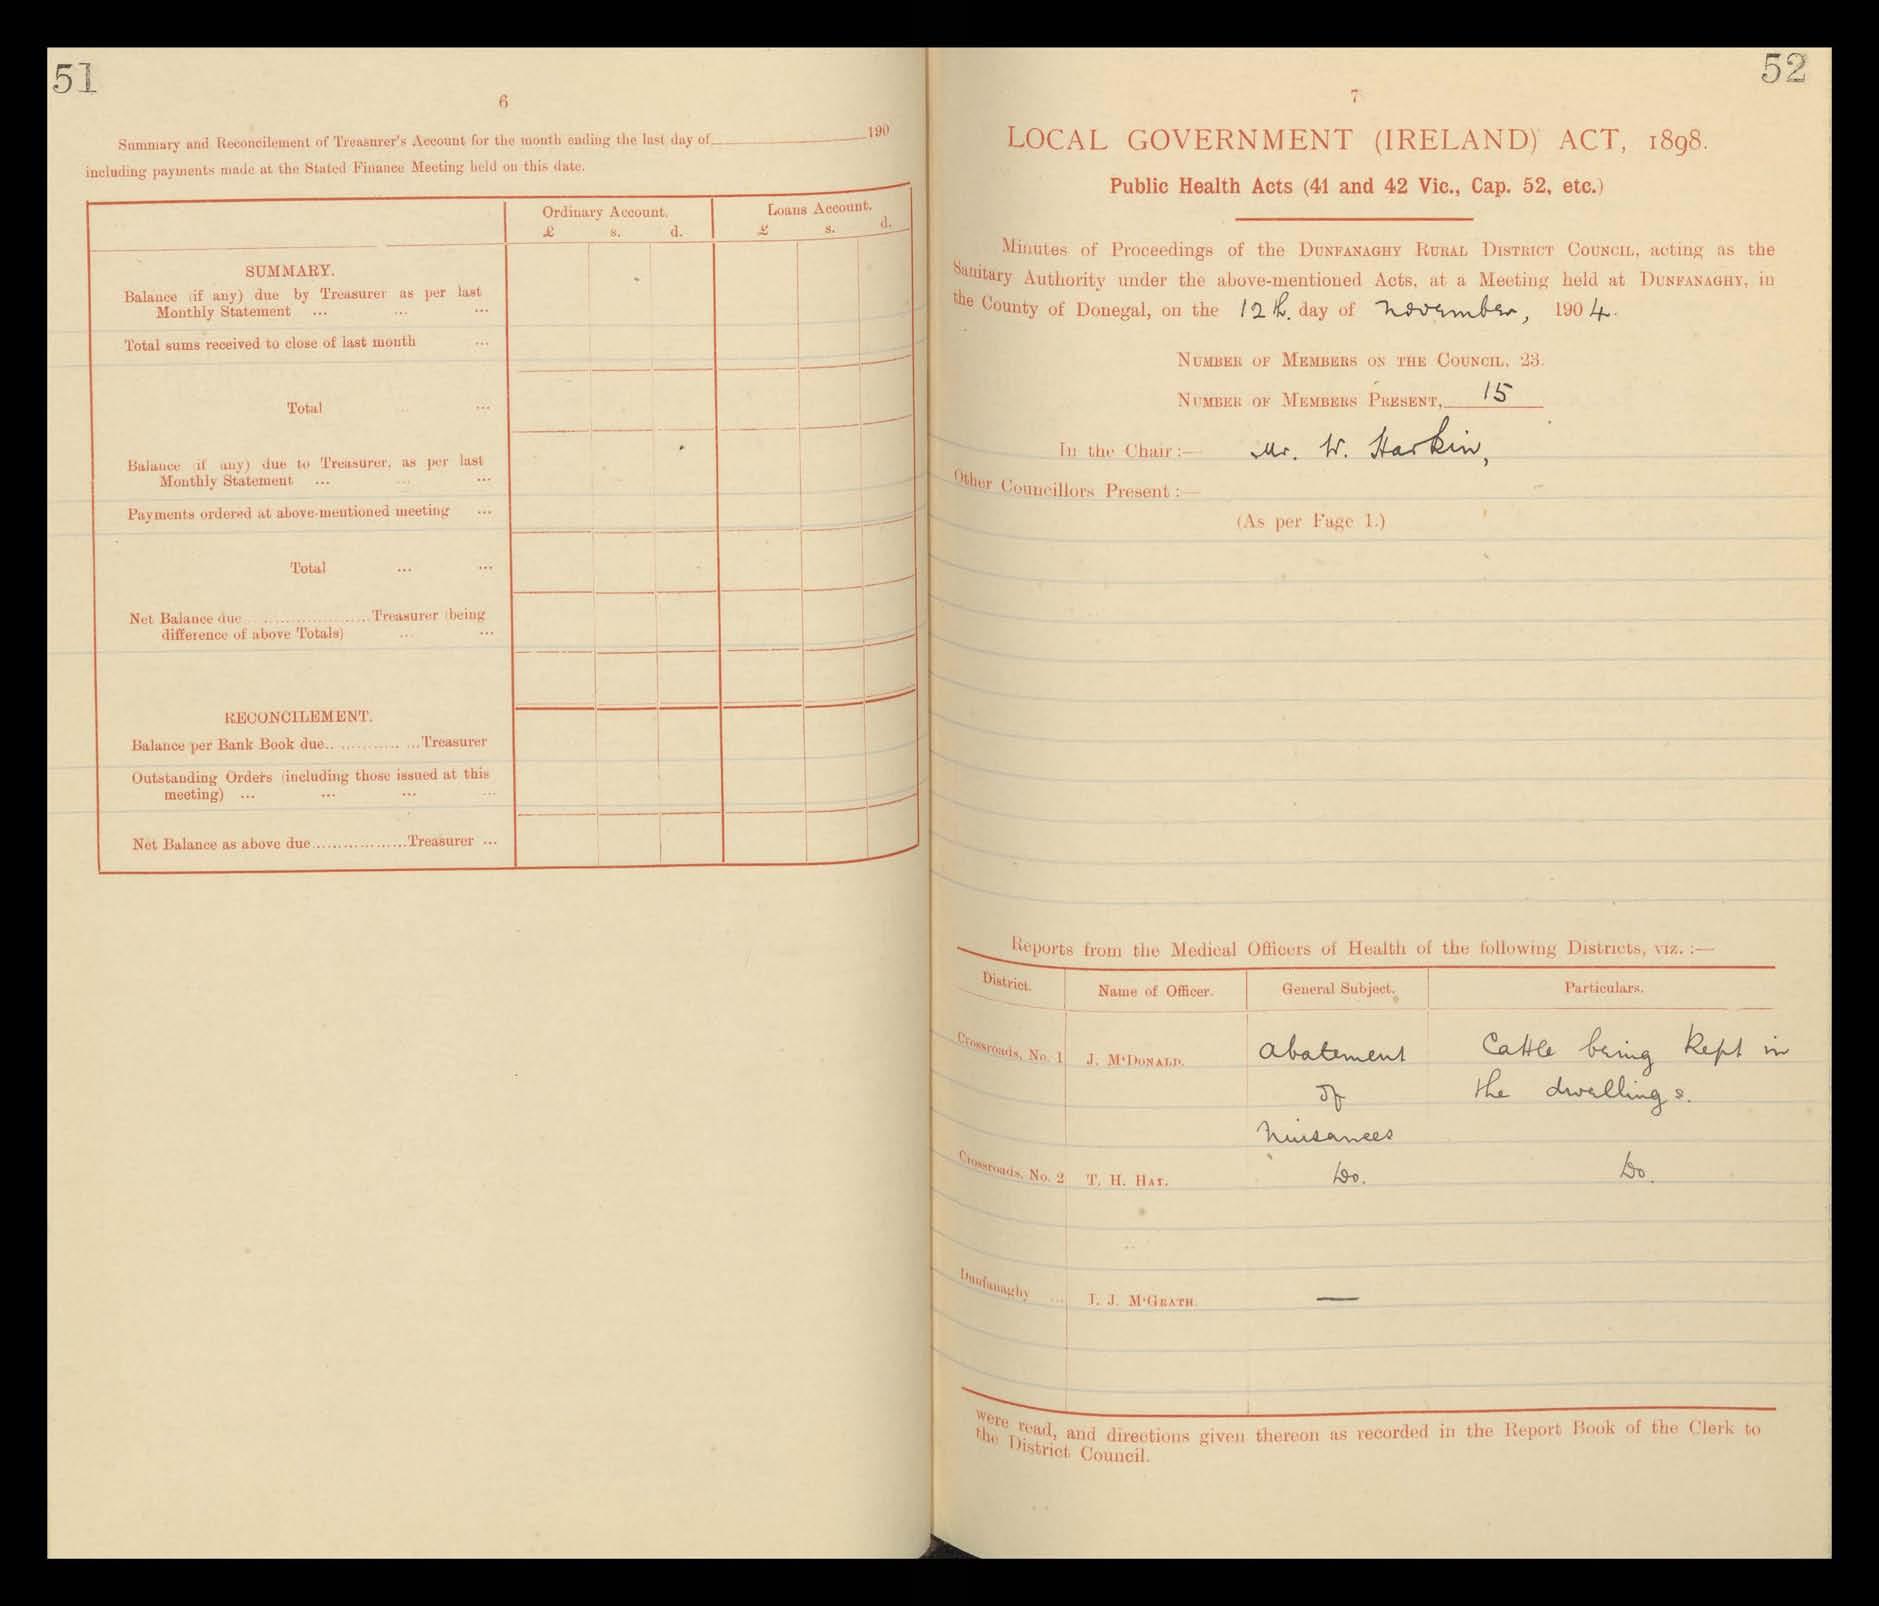 51
6
Summary and Reconcilement of Treasurer's Account for the month ending the last day of 190
including payments made at the Stated Finance Meeting held on this date.
Ordinary Account. Loans Account.
£ s. d. £ s. d.
SUMMARY.
Balance (if any) due by Treasurer as per last
Monthly Statement ... ... ...
Total sums received to close of last month ...
Total ... ...
Balance (if any) due to Treasurer, as per last
Monthly Statement ... ... ...
Payments ordered at above-mentioned meeting ...
Total ... ...
Net Balance due ..................... Treasurer (being
difference of above Totals) ... ...
RECONCILEMENT.
Balance per Bank Book due.. ............ ...Treasurer
Outstanding Orders (including those issued at this
meeting) ... ... ... ...
Net Balance as above due..................Treasurer ...
52
7
LOCAL GOVERNMENT (IRELAND) ACT, 1898.
Public Health Acts (41 and 42 Vic., Cap. 52, etc.)
Minutes of Proceedings of the Dunfanaghy Rural District Council, acting as the
Sanitary Authority under the above-mentioned Acts, at a Meeting held at Dunfanaghy, in
the County of Donegal, on the 12th. day of November, 1904.
Number of Members on the Council, 23.
Number of Members Present, 15
In the Chair :— Mr. W. Harkin,
Other Councillors Present :—
(As per Page 1.)
Reports from the Medical Officers of Health of the following Districts, viz. :—
District. Name of Officer. General Subject. Particulars.
Crossroads, No. 1 J. M'Donald. Abatement Cattle being kept in
of the dwellings.
Nuisances
Crossroads, No. 2 T. H. Hay. Do. Do.
Dunfanaghy ... J. J. M'Grath. —
were read, and directions given thereon as recorded in the Report Book of the Clerk to
the District Council.